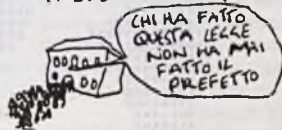 CHI HA FATTO
QUESTA LEGGE
NON HA MAI
FATTO IL
PREFETTO